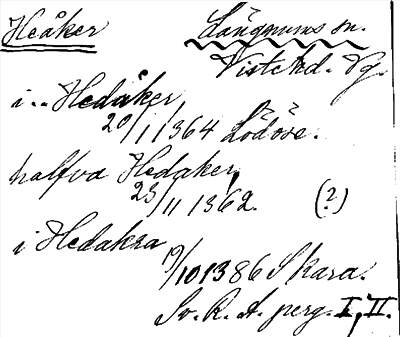 Heåker Långnums sn.
Viste hd. Vg.
i .. Hedåker
20/1 1364 Lödöse.
halfva Hedaker,
23/11 1362. (?)
i Hedakra
19/10 1386 Skara.
Sv. R. A. perg. I, II.